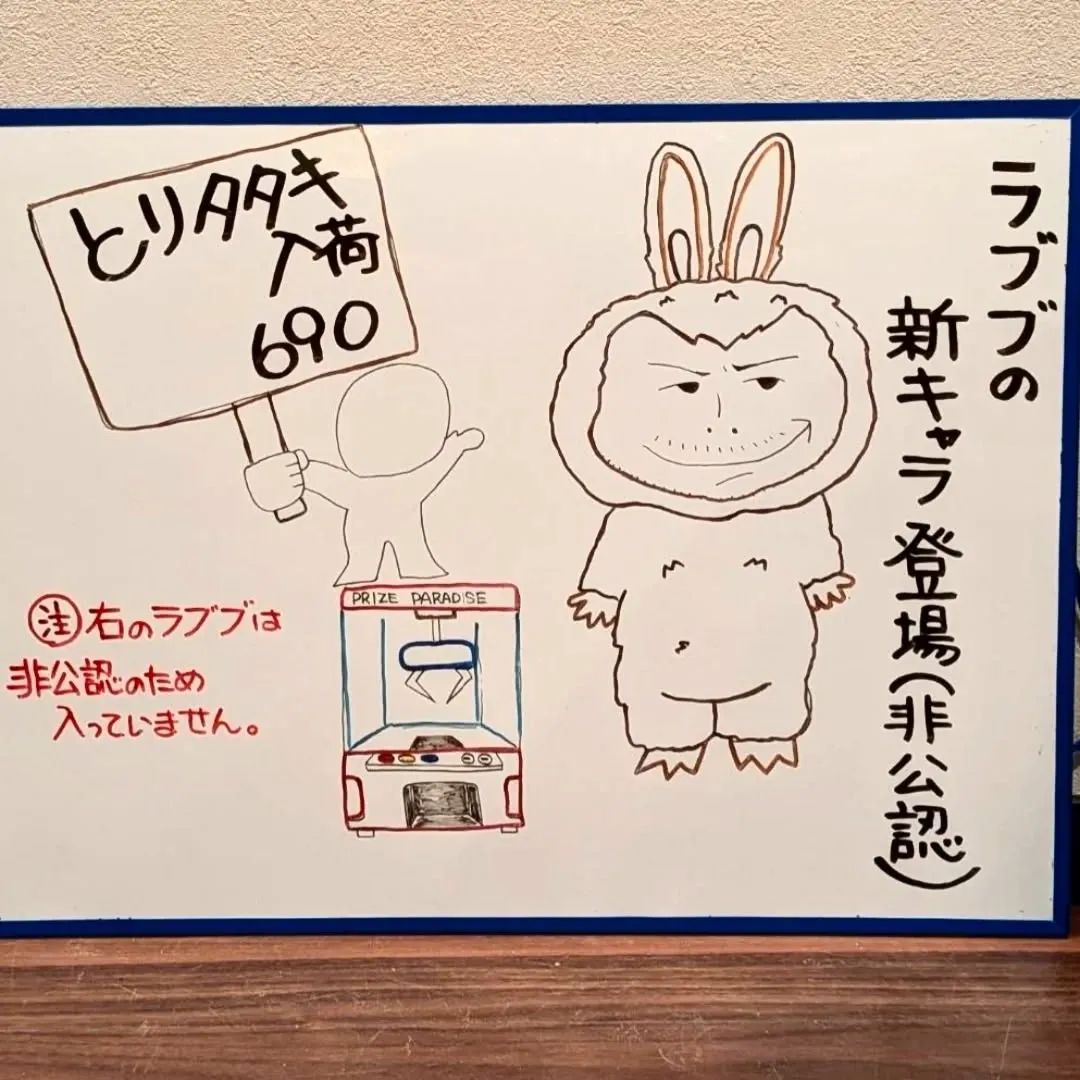 ラブブの
新キャラ登場(非公認)
とりタタキ
入荷
690
PRIZE PARADISE
注右のラブブは
非公認のため
入っていません。